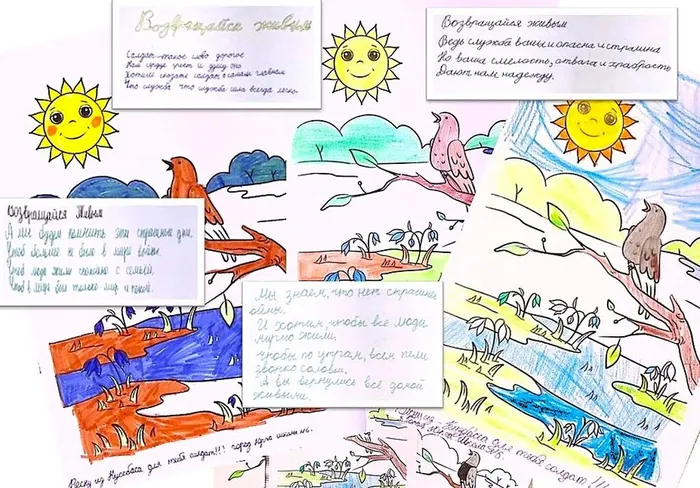 Возвращайся живым
Солдат-такое слово дорогое
Нам сразу учит и душу оно
Хотели сказать солдат о самом главном
что служба всегда легко.
Возвращайся живым
Ведь служба ваша и опасна и страшна
Но ваша смелость, отвага и храбрость
Дают нам надежду.
Возвращайся Живым
А мы будем помнить эти страшные дни,
Чтоб больше не было в мире войны.
Чтоб люди жили спокойно с семьёй,
Чтоб в людях был только мир и покой.
Мы знаем, что нет страшнее
войны.
И хотим, чтобы все люди
мирно жили,
Чтобы по утрам, всем пели
звонко соловьи.
А вы вернулись все домой
живыми.
Весну из Кузбасса для тебя солдат!!! город
для тебя солдат!!!